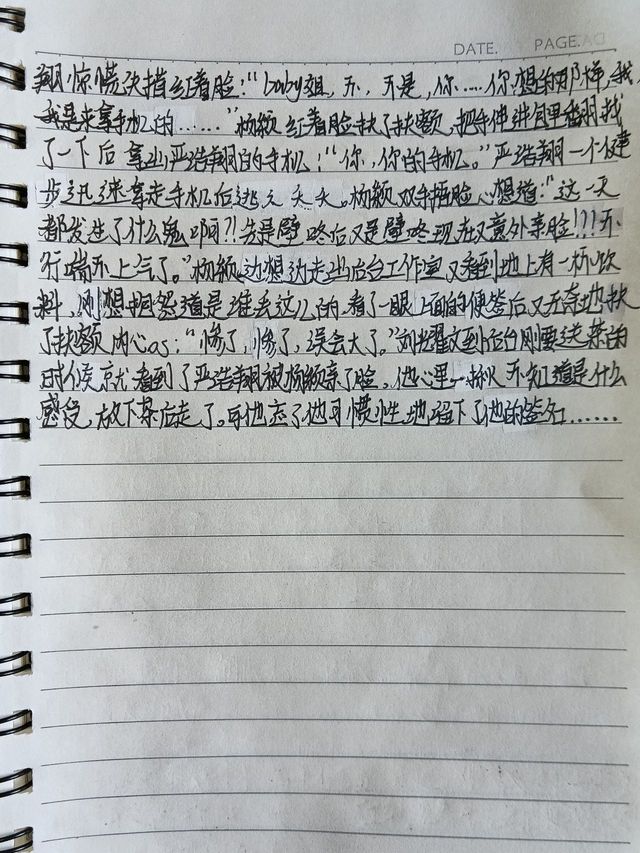 DATE. PAGE.
翔惊慌失措红着脸：“baby姐，不，不是，你……你想的那样，我，
我是来拿手机的……”杨颖红着脸扶了扶额，把手伸进包里翻找
了一下后拿出严浩翔的手机：“你，你的手机。”严浩翔一个健
步迅速拿走手机后逃之夭夭。杨颖双手捂脸心想道：“这一天
都发生了什么鬼啊?!先是壁咚后又是壁咚现在又意外亲脸!?!不
行喘不上气了。”杨颖边想边走出后台工作室又看到地上有一杯饮
料，刚想抱怨道是谁丢这儿的，看了一眼上面的便签后又无奇地扶
了扶额内心os：“惨了，惨了，误会大了。”刘耀文到后台刚要送茶的
时候就看到了严浩翔被杨颖亲了脸，他心里一揪不知道是什么
感受，放下茶后走了。可他忘了他习惯性地留下了他的签名……